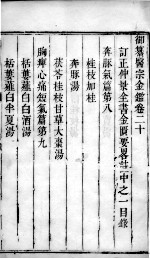 御纂醫宗金鑑卷二十
訂正仲景全書金匱要畧註中之一目錄
奔豚氣篇第八
桂枝加桂
奔豚湯
茯苓桂枝甘草大棗湯
胸痺心痛短氣篇第九
栝蔞薤白白酒湯
栝蔞薤白半夏湯